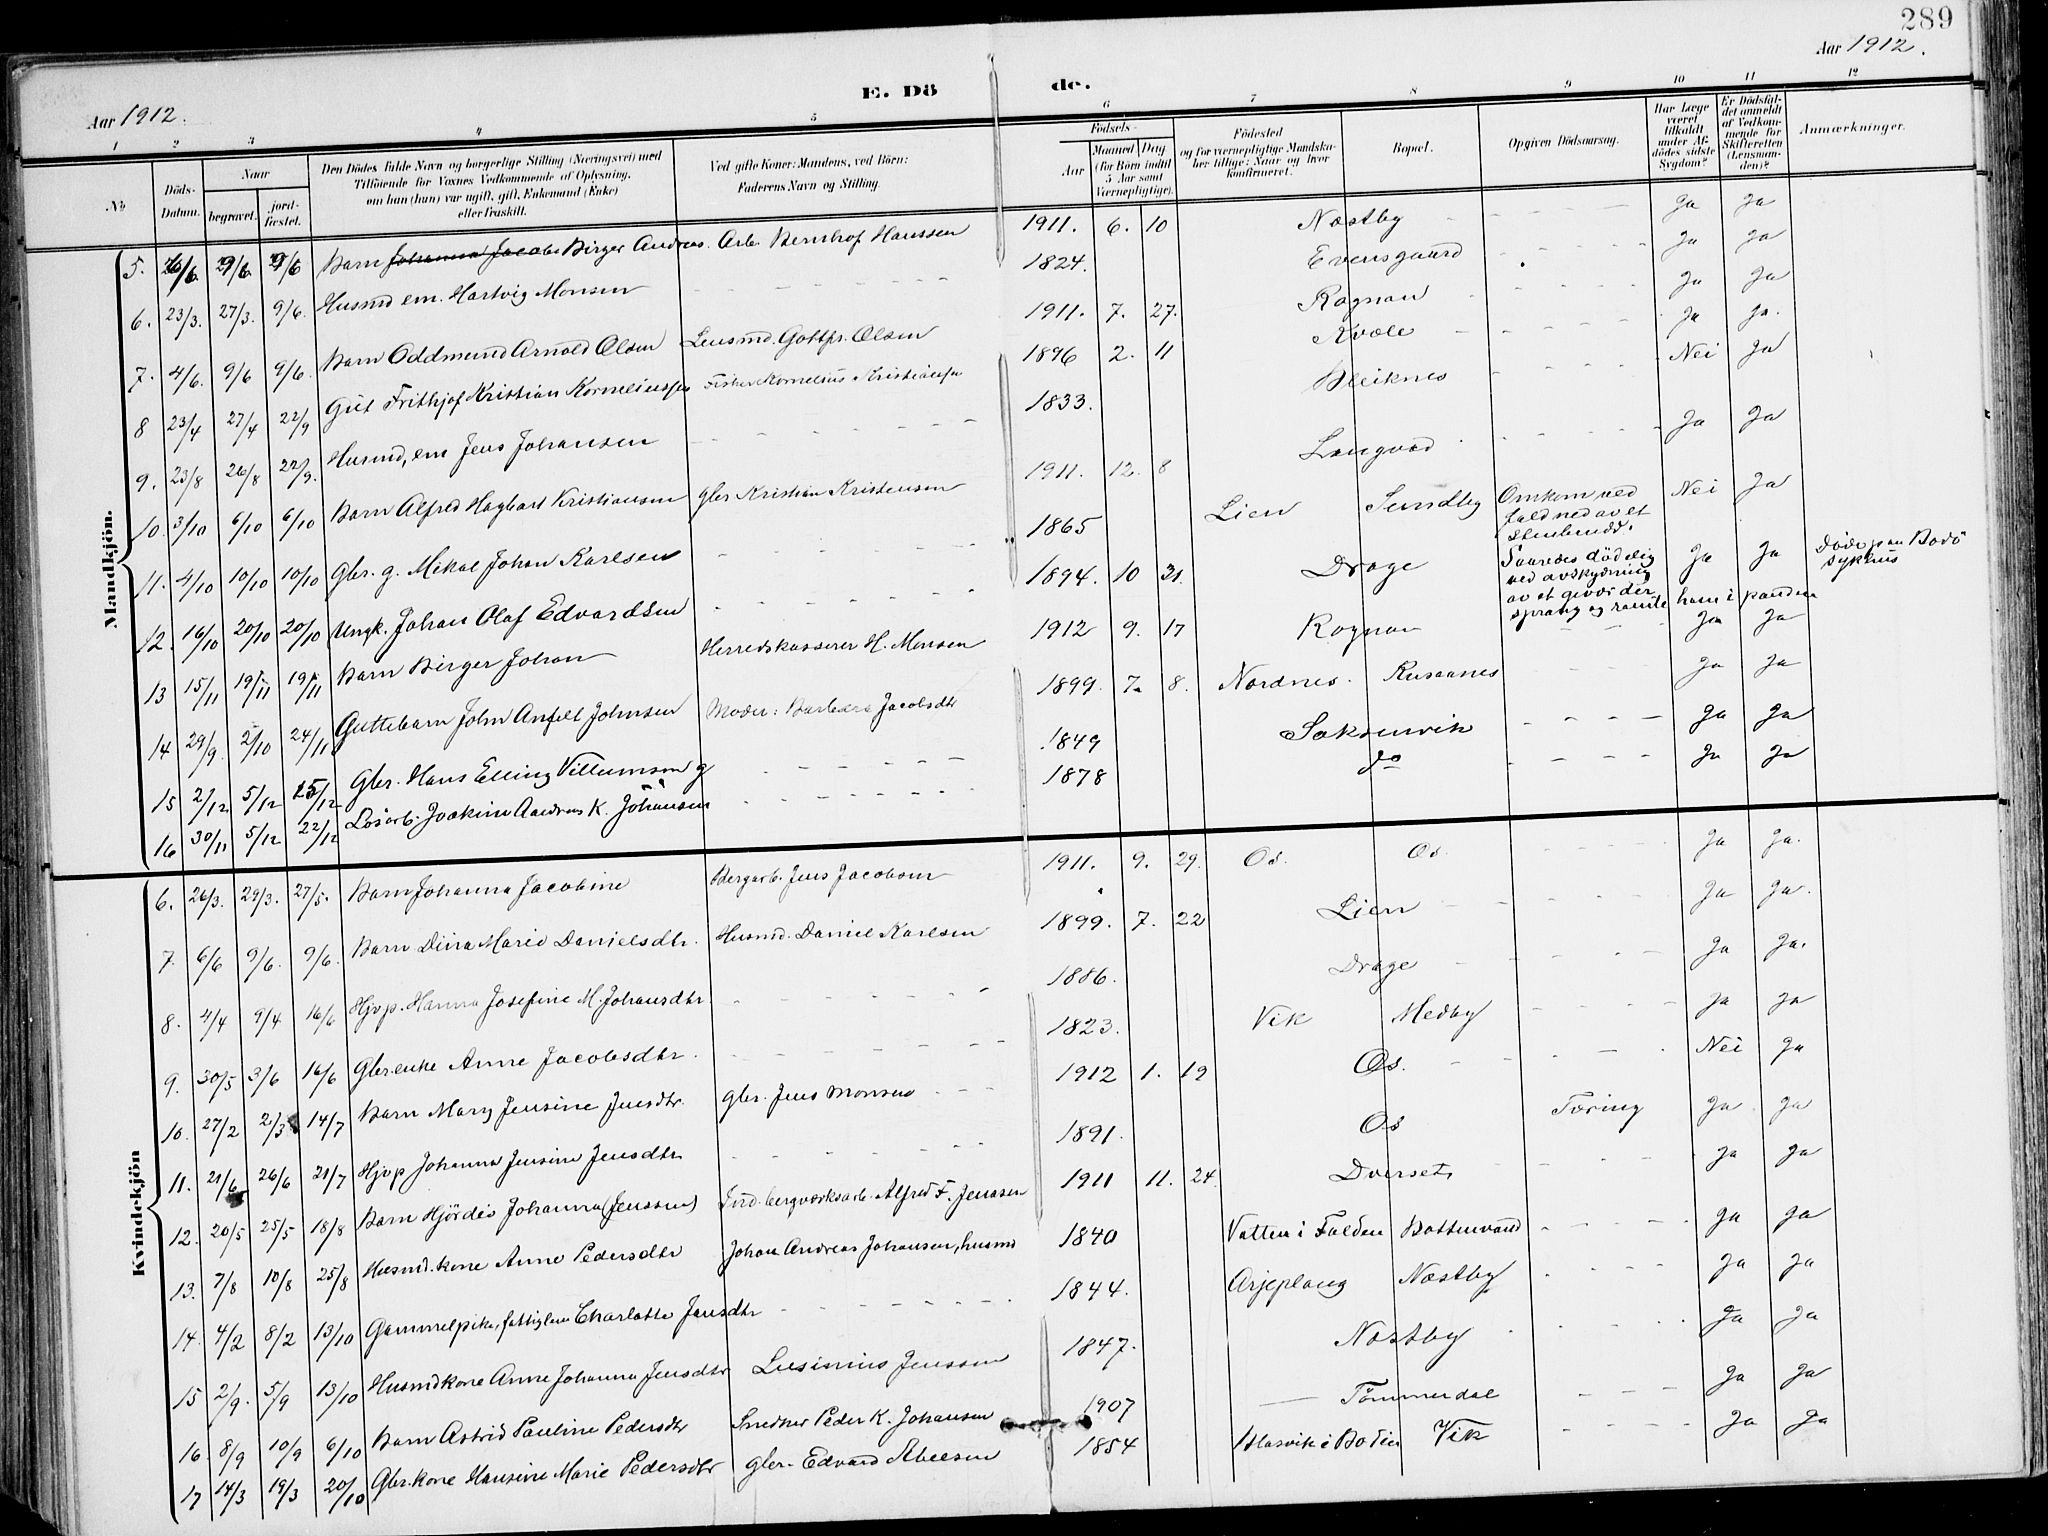 289
Aar 1912.
Aar 1912.
E. Dö de.
1 2 3 4 5 6 7 8 9 10 11 12
No
Döds-Datum.
Naar
begravet.
jord-fæstet.
Den Dödes fulde Navn og borgerlige Stilling (Næringsvei) med
Tilföiende for Voxnes Vedkommende af Oplysning,
om han (hun) var ugift, gift, Enkemand (Enke)
eller fraskilt.
Ved gifte Koner: Mandens, ved Börn:
Faderens Navn og Stilling.
Födsels-
Aar
Maaned Dag
(for Börn indtil
5 Aar samt
Værnepligtige).
Födested
og for værnepligtige Mandska-
ber tillige: Naar og hvor
konfirmeret.
Bopæl.
Opgiven Dödsaarsag.
Har Læge
været
tilkaldt
under Af-
dödes sidste
Sygdom?
Er Dödsfal-
det anmeldt
af Vedkom-
mende for
Skifteretten
(Lensman-
den)?
Anmærkninger.
Mandkjön.
5. 26/6. 29/6. 9/6 Barn Johanna Jacobi Birger Andreas. Arb. Bernhof Hanssen 1911. 6. 10 Næstby Ja Ja
6. 23/3. 27/3. 9/6. Husmd em. Hartvig Monsen 1824. Evensgaard Ja Ja
7. 4/6. 9/6 9/6. Barn Oddmund Arnold Olsen Lensmd. Gottfr. Olsen 1911. 7. 27. Rognan Ja Ja
8 23/4 27/4 22/9 Gut Frithjof Kristian Korneliussen Fisker Kornelius Kristiansen 1896 2. 11 Kvæle Ja Ja.
9. 23/8 26/8 22/9. Husmd, em Jens Johansen 1833. Bleiknes Nei Ja
10. 3/10 6/10 6/10 Barn Alfred Hagbart Kristiansen Gbr Kristian Kristensen 1911. 12. 8 Langvad Ja Ja
11. 4/10 10/10 10/10 Gbr. g. Mikal Johan Karlsen 1865 Lien Sundby Omkom ved
fald ned av et
stenbrudd. Nei Ja
12. 16/10 20/10 20/10 Ungk. Johan Olaf Edvardsen 1894. 10 31. Drage Saaredes dødelig
ved avskydning
av et gevær der
sprang og ramte ham i panden Ja Ja Døde paa Bodø
sykhus
13 15/11 19/11 19/11 Barn Birger Johan Herredskasserer H. Monsen 1912 9. 17 Rognan Ja Ja
14 29/9. 2/10 24/11 Guttebarn John Anfelt Johnsen Moder: Barbara Jacobsdtr 1899. 7. 8. Nordnes. Rusaanes Ja Ja
15 2/12 5/12 15/12 Gbr. Hans Elling Villumsen g 1849 Saksenvik Ja Ja
16 30/11 5/12 22/12 Løsarb. Joakim Andreas K. Johansen 1878 do Ja Ja
Kvindekjön
6. 26/3. 29/3. 27/5. Barn Johanna Jacobine Bergarb. Jens Jacobsen 1911. 9. 29. Os. Os. Ja Ja.
7. 6/6 9/6. 9/6. Barn Dina Marie Danielsdtr. Husmd. Daniel Karlsen 1899. 7. 22 Lien Ja Ja.
8. 4/4 9/4 16/6 Hjvp. Hanna Josefine M. Johansdtr 1886. Drage Ja Ja.
9. 30/5 3/6 16/6 Gbr.enke Anne Jacobsdtr. 1823. Vik Medby Ja Ja
10. 27/2 2/3 14/7 Barn Mary Jensine Jensdtr. Gbr. Jens Monsen 1912 1. 19 Os. Nei Ja
11. 21/6 26/6 21/7 Hjvp Johanna Jensine Jensdtr 1891. Os Tæring Ja Ja
12. 20/5 25/5 18/8 Barn Hjördis Johanna (Jenssen) Ind. bergværksarb. Alfred F. Jenssen 1911 11. 24. Dverset Ja Ja
13. 7/8 10/8 25/8 Husmd.kone Anne Pedersdtr Johan Andreas Johansen, husmd 1840 Vatten i Folden Bottenvand Ja Ja
14. 4/2 8/2 13/10 Gammelpike, fattiglem Charlotte Jansdtr 1844. Arjeplaug Næstby Ja Ja
15 2/9. 5/9 13/10 Husmdkone Anne Johanna Jensdtr Lusinius Jenssen 1847. Næstby Ja Ja
16. 8/9 10/9 6/10 Barn Astrid Pauline Pedersdtr Snedker Peder K. Johansen 1907 Tømmerdal Ja Ja
17 14/3 19/3 20/10 Gbr.kone Hansine Marie Pedersdtr Gbr. Edvard Abelsen 1854 Blasvik i Bodin Vik Ja Ja